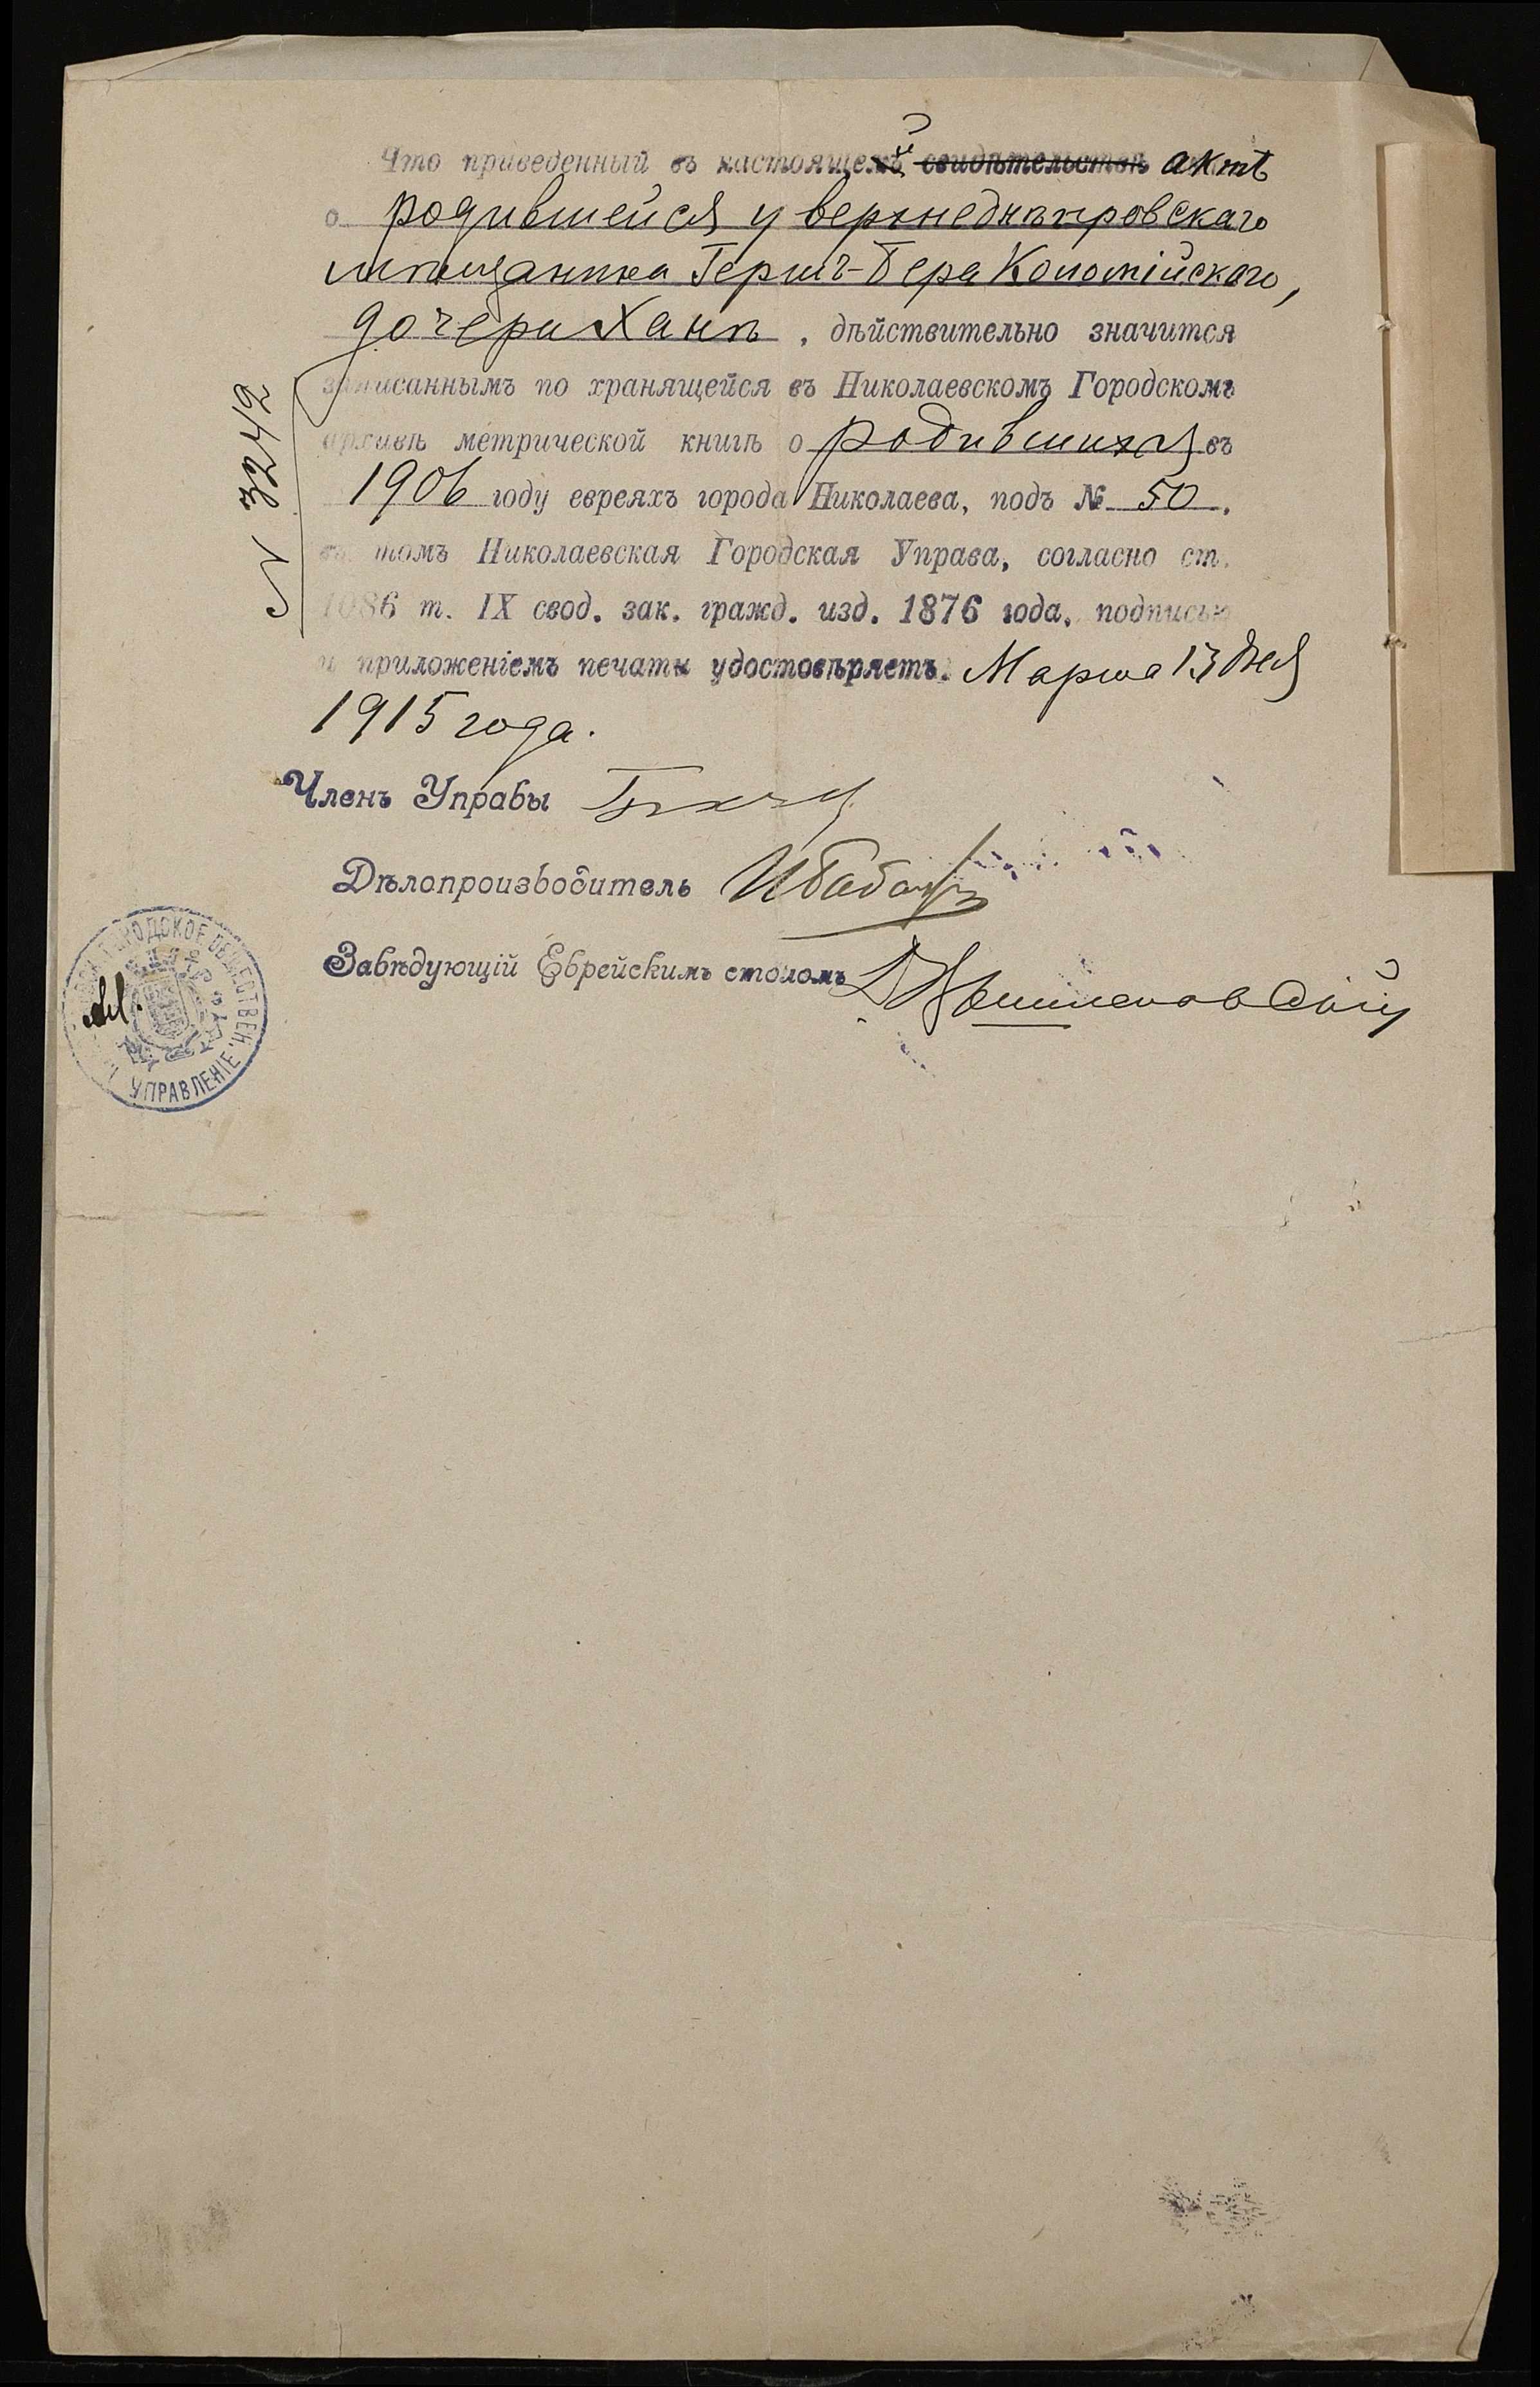 Что приведенный въ настоящемъ свидѣтельствѣ актѣ
о родившейся у верхнеднѣпровскаго
мѣщанина Герш-Бера Коломійскаго,
дочери Ханѣ, дѣйствительно значится
записаннымъ по хранящейся въ Николаевскомъ Городскомъ
архивѣ метрической книгѣ о родившихся въ
1906 году евреяхъ города Николаева, подъ № 50.
въ томъ Николаевская Городская Управа, согласно ст.
1086 т. IX свод. зак. гражд. изд. 1876 года, подписью
и приложеніемъ печати удостовѣряетъ. Марта 13 дня
1915 года.
N 3242
Членъ Управы
Дѣлопроизводитель
Завѣдующій Еврейскимъ столомъ
ГОРОДСКОЕ ОБЩЕСТВЕН. УПРАВЛЕНІЕ